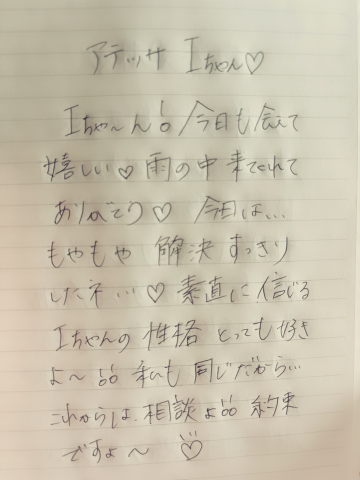 アテッサ Iちゃん♡
Iちゃ〜ん! 今日も会えて
嬉しい♡ 雨の中 来てくれて
ありがとう♡ 今日は…
もやもや 解決 すっきり
したネ…♡ 素直に信じる
Iちゃんの性格 とっても好き
よ〜!! 私も同じだから…
これからは、相談よ!! 約束
ですよ〜 ♡